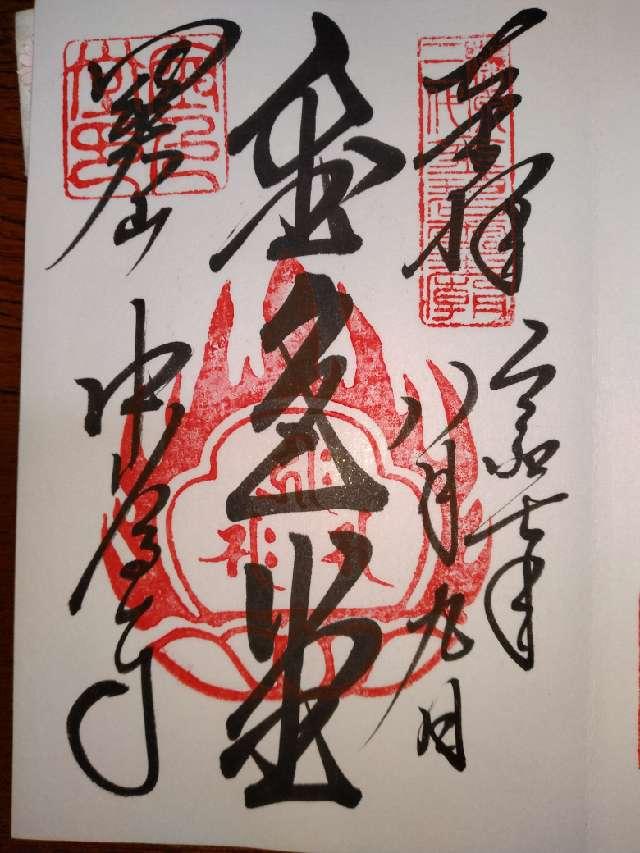 奉拝
令和七年
八月九日
金色堂
関山
中尊寺